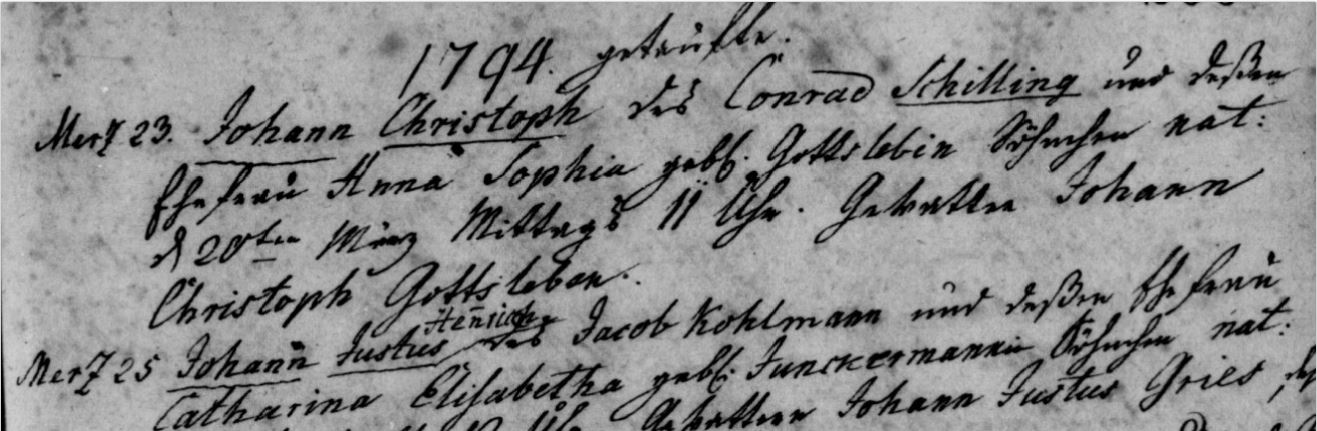 1794. getaufte.
Merz 23. Johann Christoph des Conrad Schilling und deßen
Ehefrau Anna Sophia gebl. Gottslebin Söhnchen nat:
d 20ten März Mittags 11 Uhr. Gevatter Johann
Christoph Gottsleben.
Henrich
Merz 25 Johann Justus des Jacob Kohlmann und deßen Ehefrau
Catharina Elisabetha gebl. Junckermannin Söhnchen nat:
Uhr Gevattern Johann Justus Gries,